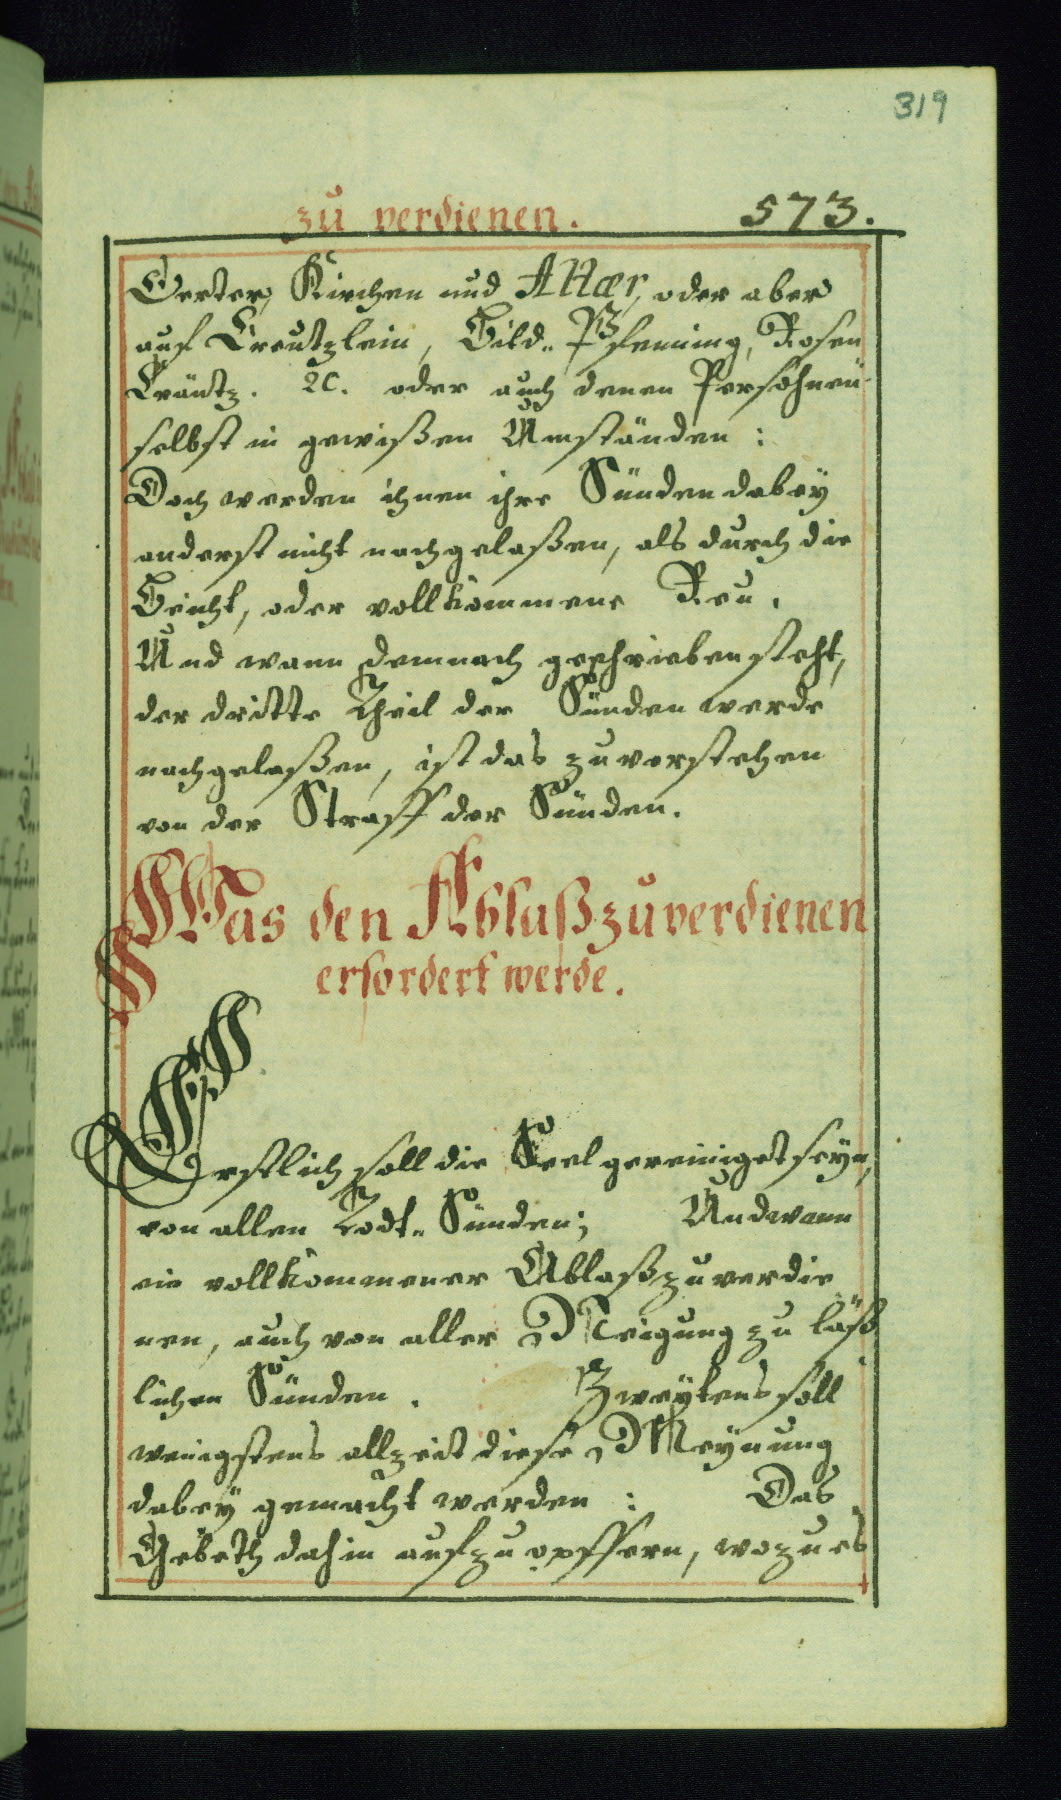 319
zu verdienen. 573.
Oerter, Kirchen und Altær, oder aber
auf Creutzlein, Bild-Pfenning, Rosen
Cräntz. 2c. oder auch denen Persohnen
selbst in gewißen Umständen:
Doch werden ihnen ihre Sünden dabeÿ
anderst nicht nachgelaßen, als durch die
Beicht, oder vollkommene Reu.
Und wann demnach geschrieben steht,
der dritte Theil der Sünden werde
nachgelaßen, ist das zuverstehen
von der Straff der Sünden.
Was den Ablaß zuverdienen
erfordert werde.
Erstlich soll die Seel gereiniget seÿn,
von allen Todt-Sünden; Und wann
ein vollkommener Ablaß zuverdie
nen, auch von aller Neigung zu läß
lichen Sünden. Zweÿtens soll
wenigstens allzeit diese Meÿnung
dabeÿ gemacht werden: Das
Gebeth dahin aufzuopffern, wozu es